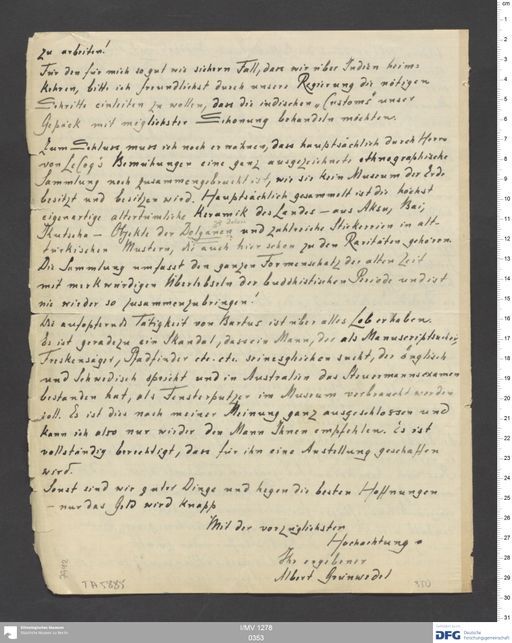 zu arbeiten!
Für den für mich so gut wie sichern Fall, dass wir über Indien heim-
kehren, bitte ich freundlichst durch unsere Regierung die nötigen
Schritte einleiten zu wollen, dass die indischen „Customs" unser
Gepäck mit möglichster Schonung behandeln möchten.
Zum Schluss muss ich noch erwähnen, dass hauptsächlich durch Herrn
von LeCoq's Bemühungen eine ganz ausgezeichnete ethnographische
Sammlung noch zusammengebracht ist, wie sie kein Museum der Erde
besitzt und besitzen wird. Hauptsächlich gesammelt ist die höchst
eigenartige altertümliche Keramik des Landes – aus Aksu, Bai,
Kutscha – Objekte der Dolganen und zahlreiche Stickereien in alt-
türkischen Mustern, die auch hier schon zu den Raritäten gehören.
Die Sammlung umfasst den ganzen Formenschatz der alten Zeit
mit merkwürdigen Überlebseln der buddhistischen Periode und ist
nie wieder so zusammenzubringen!
Die aufopfernde Tätigkeit von Bartus ist über alles Lob erhaben.
Es ist geradezu ein Skandal, dass ein Mann, der als Manuscriptsucher,
Freskensäger, Pfadfinder etc. etc. seinesgleichen sucht, der Englisch
und Schwedisch spricht und in Australien das Steuermannsexamen
bestanden hat, als Fensterputzer im Museum verbraucht werden
soll. Es ist dies nach meiner Meinung ganz ausgeschlossen und
kann ich also nur wieder den Mann Ihnen empfehlen. Es ist
vollständig berechtigt, dass für ihn eine Anstellung geschaffen
wird.
Sonst sind wir guter Dinge und hegen die besten Hoffnungen
– nur das Geld wird knapp
Mit der vorzüglichsten
Hochachtung
Ihr ergebener
Albert Grünwedel
TA 5885
350
Ethnologisches Museum
Staatliche Museen zu Berlin
I/MV 1278
0353
DFG Deutsche
Forschungsgemeinschaft